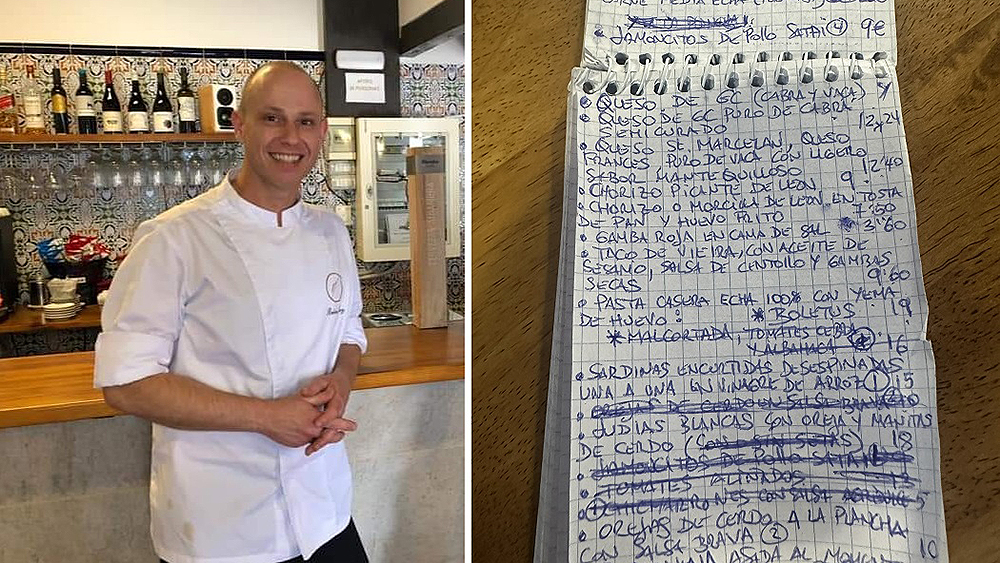 AFORO
JAMONCITOS DE POLLO SATAI (4) 9€
• QUESO DE GC (CABRA Y VACA) Y
• QUESO DE GC PURO DE CABRA
SEMICURADO 12,24
• QUESO ST. MARCELAN, QUESO
FRANCES PURO DE VACA CON LIGERO
SABOR MANTEQUILLOSO 12,40
• CHORIZO PICANTE DE LEON 9
• CHORIZO O MORCILLA DE LEON EN TOSTA
DE PAN Y HUEVO FRITO 7,50
• GAMBA ROJA EN CAMA DE SAL * 3,60
• TACO DE VIEIRA, CON ACEITE DE
SESAMO, SALSA DE CENTOLLO Y GAMBAS
SECAS 9,60
• PASTA CASERA ECHA 100% CON YEMA
DE HUEVO: * BOLETUS 19
* MALCORTADA, TOMATES CEBRA
Y ALBAHACA 16
• SARDINAS ENCURTIDAS DESESPINADAS
UNA A UNA EN VINAGRE DE ARROZ (1) 15
• OREJAS DE CERDO EN SALSA
• JUDIAS BLANCAS CON OREJA Y MAÑITAS
DE CERDO 18
JAMONCITOS DE POLLO SATAI
• TOMATES ALIÑADOS
CON SALSA
• OREJAS DE CERDO A LA PLANCHA
CON SALSA BRAVA (2) 10
ASADA AL MOMENTO